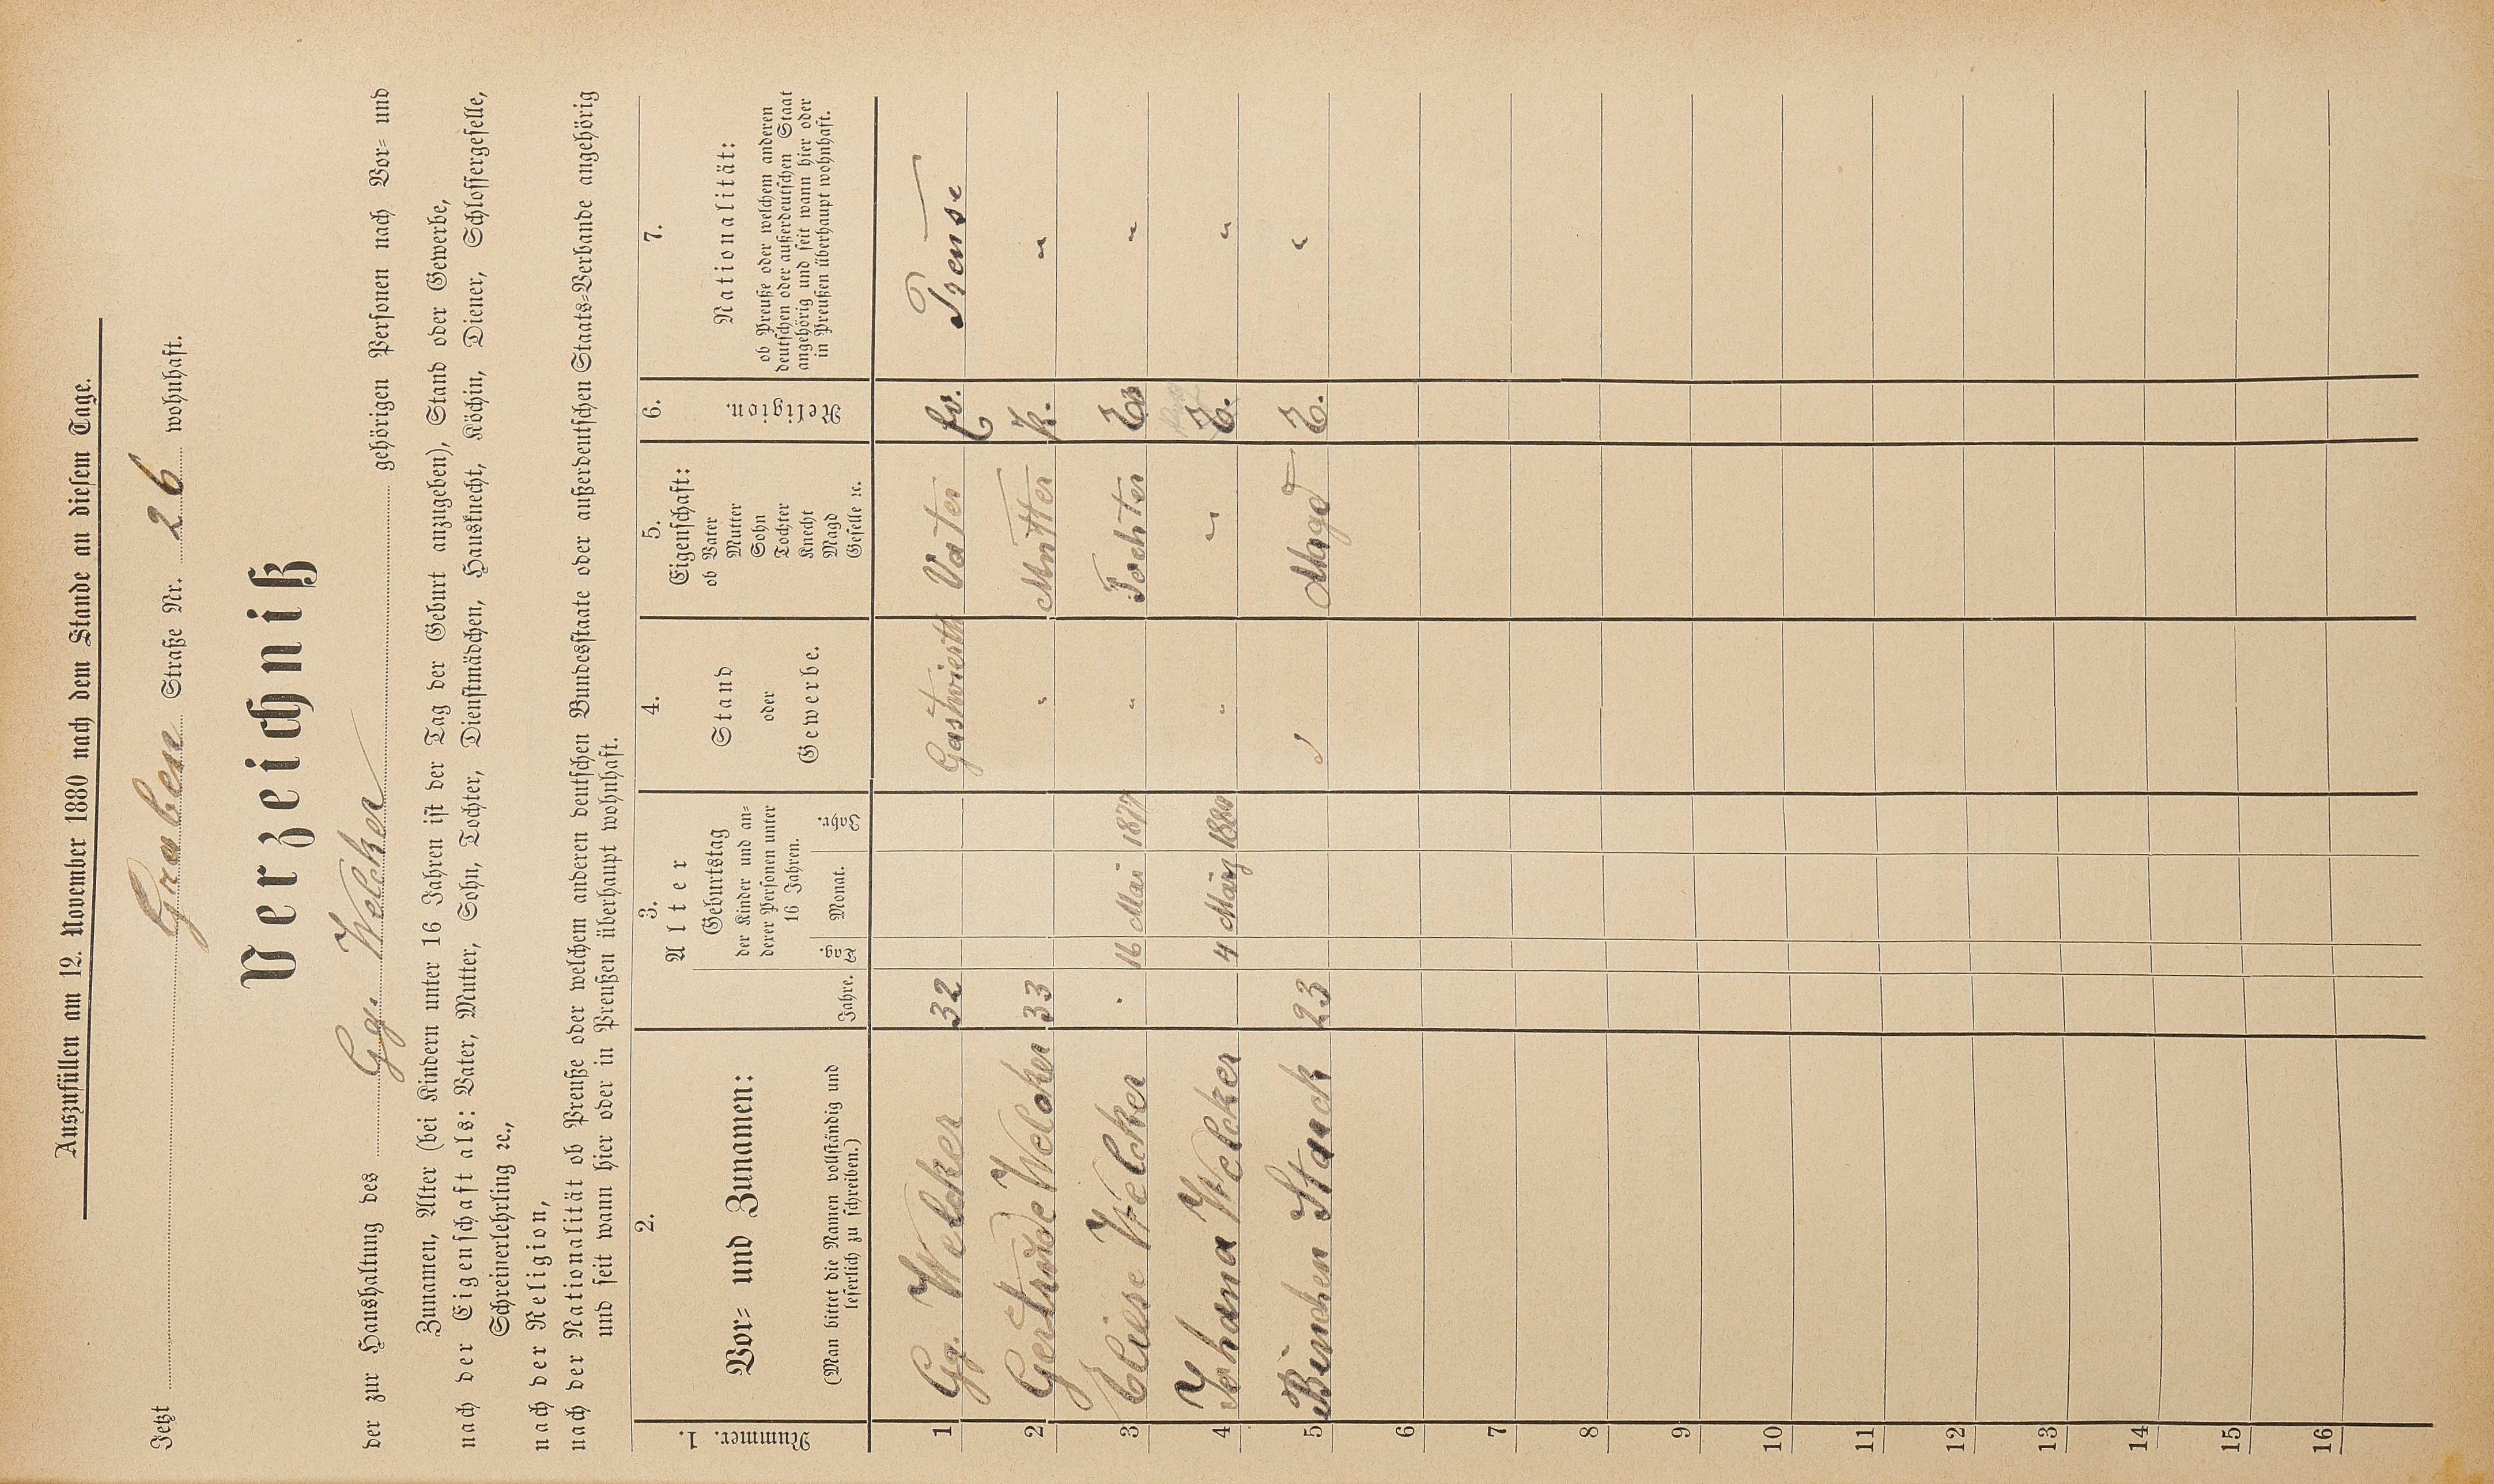 Auszufüllen am 12. November 1880 nach dem Stande an diesem Tage.
Jetzt Graben Straße Nr. 26 wohnhaft.
Verzeichniß
der zur Haushaltung des Gg. Welcker gehörigen Personen nach Vor- und
Zunamen, Alter (bei Kindern unter 16 Jahren ist der Tag der Geburt anzugeben), Stand oder Gewerbe,
nach der Eigenschaft als: Vater, Mutter, Sohn, Tochter, Dienstmädchen, Hausknecht, Köchin, Diener, Schlossergeselle,
Schreinerlehrling ꝛc.,
nach der Religion,
nach der Nationalität ob Preuße oder welchem anderen deutschen Bundesstaate oder außerdeutschen Staats-Verbande angehörig
und seit wann hier oder in Preußen überhaupt wohnhaft.
1. Nummer.
2. Vor- und Zunamen:
(Man bittet die Namen vollständig und
leserlich zu schreiben.)
3. Alter
Jahre.
Geburtstag
der Kinder und an-
derer Personen unter
16 Jahren.
Tag. Monat. Jahr.
4. Stand
oder
Gewerbe.
5. Eigenschaft:
ob Vater
Mutter
Sohn
Tochter
Knecht
Magd
Geselle ꝛc.
6. Religion.
7. Nationalität:
ob Preuße oder welchem anderen
deutschen oder außerdeutschen Staat
angehörig und seit wann hier oder
in Preußen überhaupt wohnhaft.
1 Gg. Welcker 32 Gastwierth Vater Ev. Preuse
2 Gertrude Welcker 33 " Mutter K. "
3 Eliese Welcker 16 Mai 1877 " Tochter Ev "
4 Johana Welcker 4 März 1880 " " E. "
5 Binchen Stauck 23 Magd E. "
6
7
8
9
10
11
12
13
14
15
16